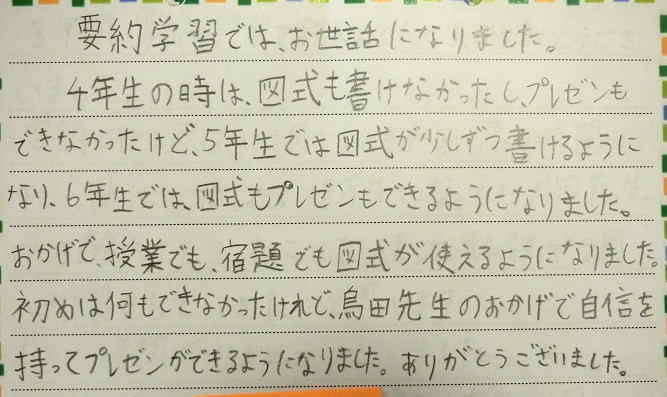 要約学習では、お世話になりました。
4年生の時は、図式も書けなかったし、プレゼンも
できなかったけど、5年生では図式が少しずつ書けるように
なり、6年生では、図式もプレゼンもできるようになりました。
おかげで、授業でも、宿題でも図式が使えるようになりました。
初めは何もできなかったけれど、鳥田先生のおかげで自信を
持ってプレゼンができるようになりました。ありがとうございました。